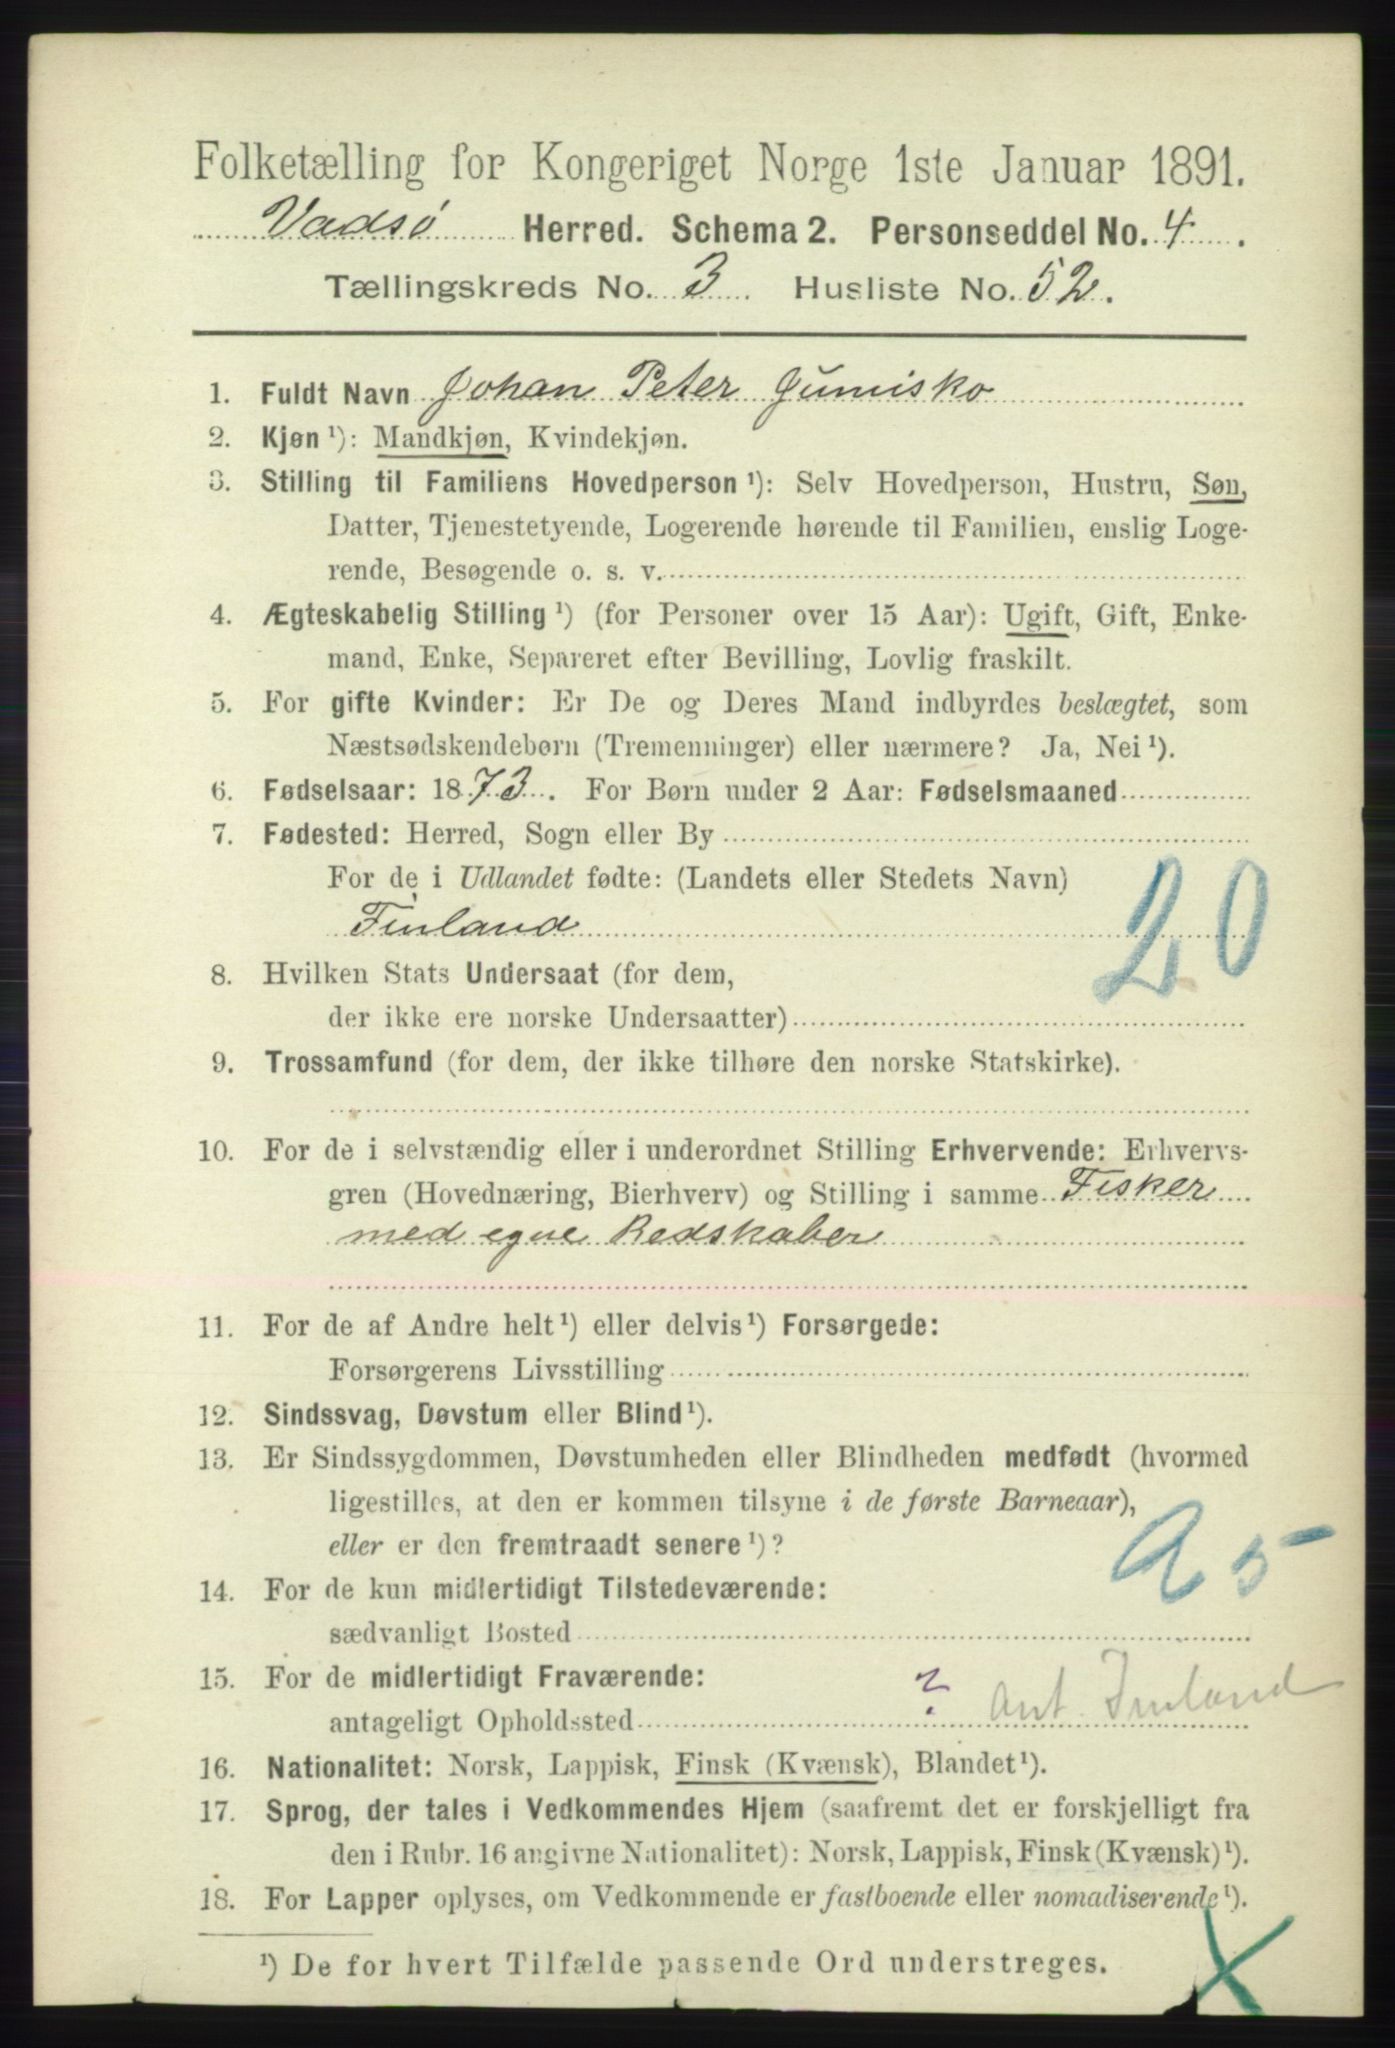 Folketælling for Kongeriget Norge 1ste Januar 1891.
Vadsø Herred. Schema 2. Personseddel No. 4.
Tællingskreds No. 3 Husliste No. 52.
1. Fuldt Navn Johan Peter Jumisko
2. Kjøn ¹): Mandkjøn, Kvindekjøn.
3. Stilling til Familiens Hovedperson ¹): Selv Hovedperson, Hustru, Søn,
Datter, Tjenestetyende, Logerende hørende til Familien, enslig Loge-
rende, Besøgende o. s. v.
4. Ægteskabelig Stilling ¹) (for Personer over 15 Aar): Ugift, Gift, Enke-
mand, Enke, Separeret efter Bevilling, Lovlig fraskilt.
5. For gifte Kvinder: Er De og Deres Mand indbyrdes beslægtet, som
Næstsødskendebørn (Tremenninger) eller nærmere? Ja, Nei ¹).
6. Fødselsaar: 1873. For Børn under 2 Aar: Fødselsmaaned
7. Fødested: Herred, Sogn eller By
For de i Udlandet fødte: (Landets eller Stedets Navn)
Finland
20
8. Hvilken Stats Undersaat (for dem,
der ikke ere norske Undersaatter)
9. Trossamfund (for dem, der ikke tilhøre den norske Statskirke).
10. For de i selvstændig eller i underordnet Stilling Erhvervende: Erhvervs-
gren (Hovednæring, Bierhverv) og Stilling i samme Fisker
med egne Redskaber
11. For de af Andre helt ¹) eller delvis ¹) Forsørgede:
Forsørgerens Livsstilling
12. Sindssvag, Døvstum eller Blind ¹).
13. Er Sindssygdommen, Døvstumheden eller Blindheden medfødt (hvormed
ligestilles, at den er kommen tilsyne i de første Barneaar),
eller er den fremtraadt senere ¹)?
a 5
14. For de kun midlertidigt Tilstedeværende:
sædvanligt Bosted
15. For de midlertidigt Fraværende:
antageligt Opholdssted ? Ant. Finland
16. Nationalitet: Norsk, Lappisk, Finsk (Kvænsk), Blandet ¹).
17. Sprog, der tales i Vedkommendes Hjem (saafremt det er forskjelligt fra
den i Rubr. 16 angivne Nationalitet): Norsk, Lappisk, Finsk (Kvænsk) ¹).
18. For Lapper oplyses, om Vedkommende er fastboende eller nomadiserende ¹).
¹) De for hvert Tilfælde passende Ord understreges.